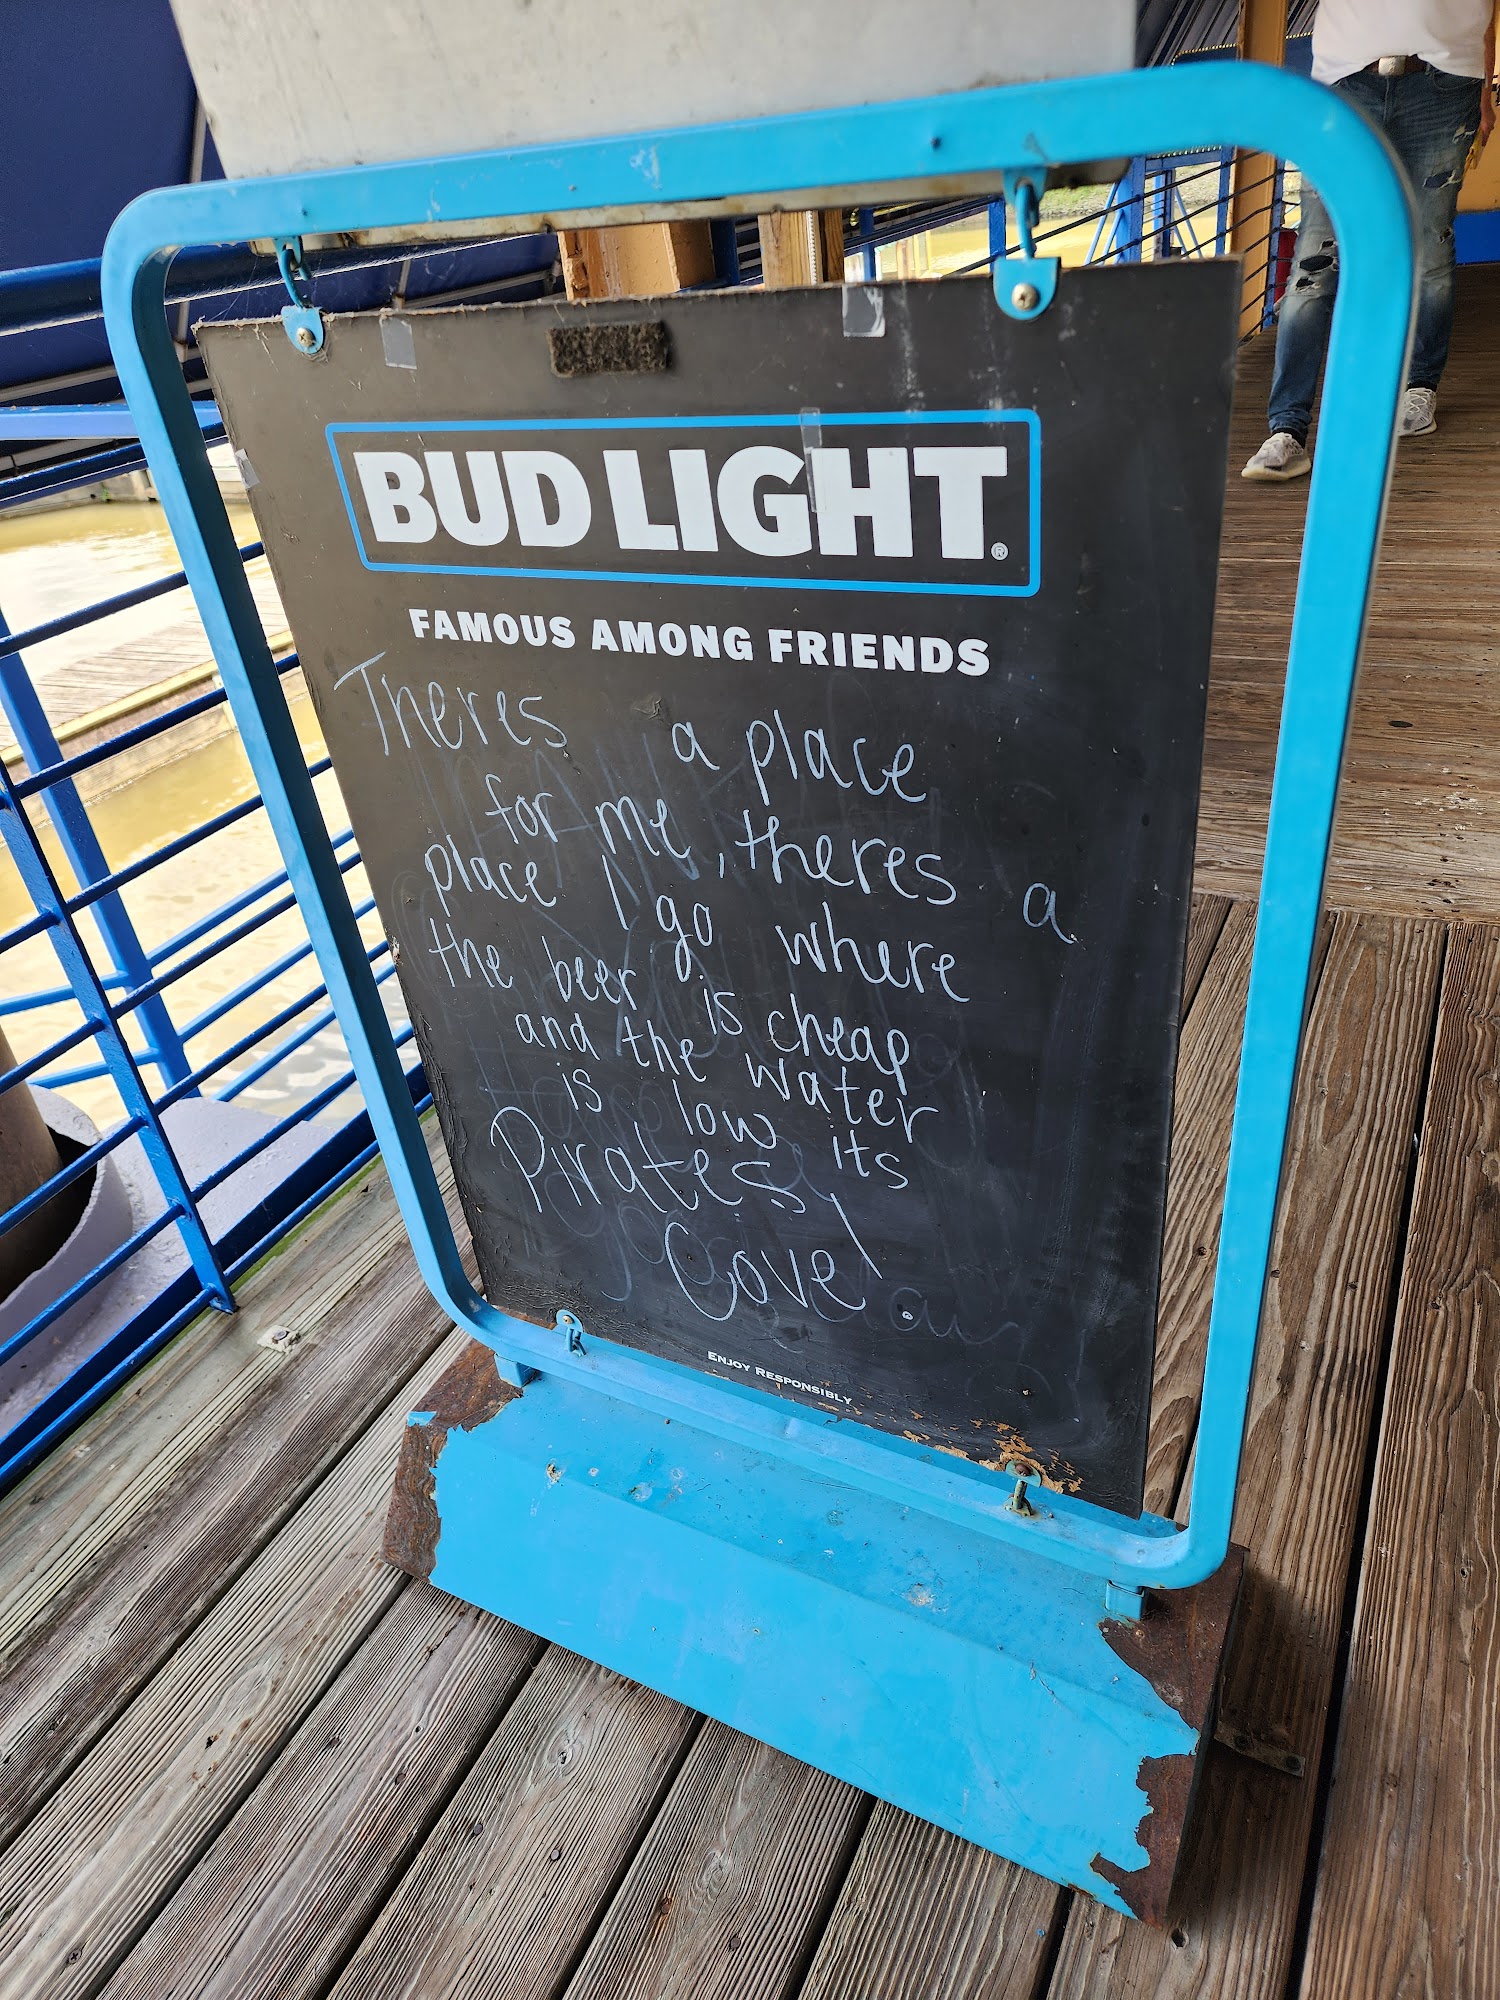 BUD LIGHT®
FAMOUS AMONG FRIENDS
Theres a place
for me, theres a
place I go where
the beer is cheap
and the water
is low its
Pirates
Cove!
ENJOY RESPONSIBLY